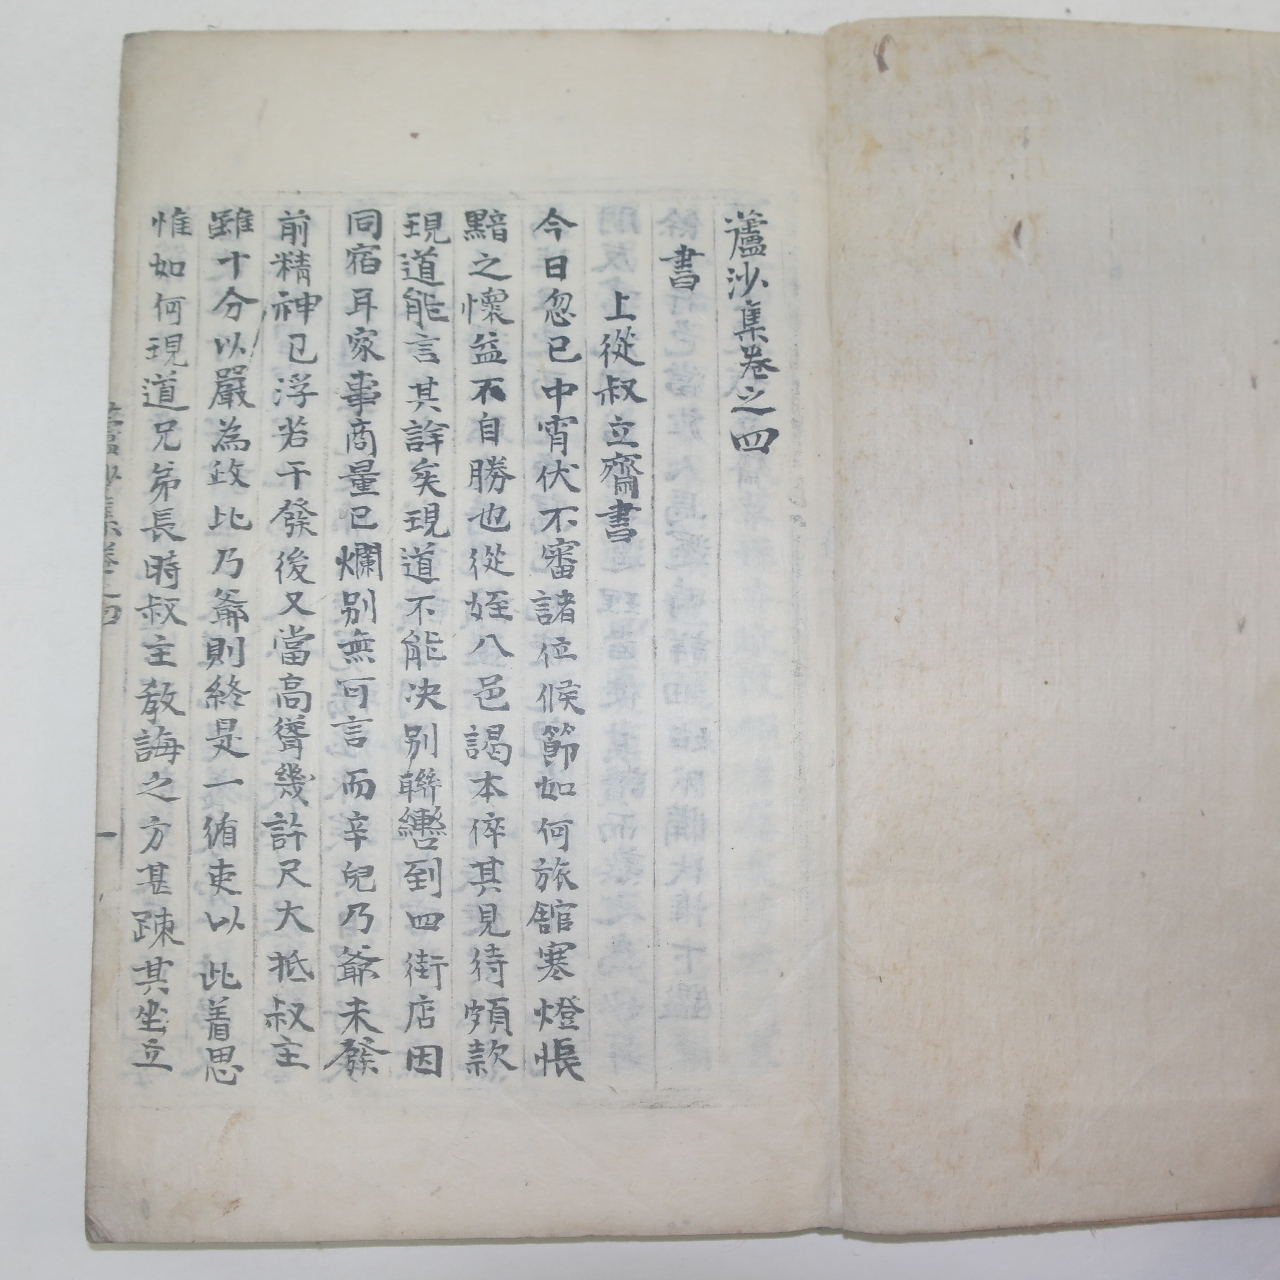 蘆沙集卷之四
書
上從叔立齋書
今日忽已中宵伏不審諸位候節如何旅館寒燈悵
黯之懷益不自勝也從姪八邑謁本倅其見待頗款
現道能言其詳矣現道不能决别聯轡到四街店因
同宿耳家事商量已爛别無可言而辛兒乃爺未發
前精神已浮若干發後又當高聳幾許尺大抵叔主
雖十分以嚴為政此乃爺則終是一循吏以此着思
惟如何現道兄弟長時叔主敎誨之方甚疎其坐立
蘆沙集卷之四
一